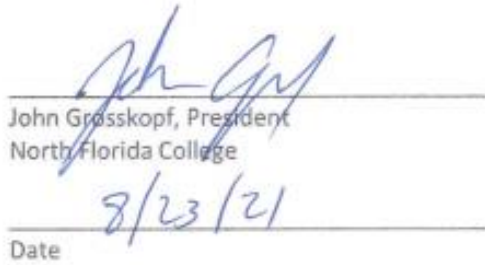 John Grosskopf, President
North Florida College
8/23/21
Date